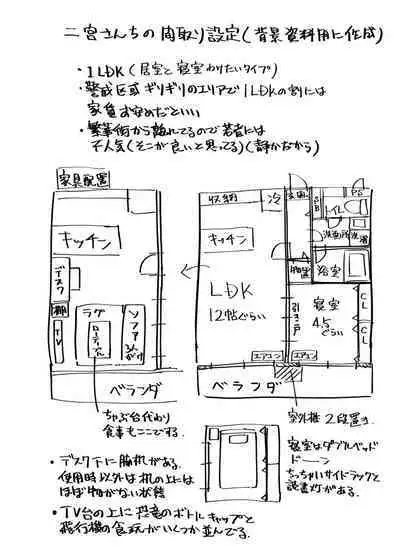 二宮さんちの間取り設定(背景資料用に作成)
・1LDK(居室と寝室わりたいタイプ)
・警戒区域ギリギリのエリアで1LDKの割には
家賃お安めだといい
・繁華街から離れてるので若者には
不人気(そこが良いと思ってる)(静かだから)
家具配置
キッチン
デスク
棚
TV
ラグ
ローテーブル
ソファ
ベランダ
ちゃぶ台代わり
食事もここでする。
収納
冷
玄関
PS
トイレ
洗面所
洗濯
キッチン
物置
浴室
LDK
12帖ぐらい
引き戸
寝室
4.5
ぐらい
CL
CL
エアコン
エアコン
ベランダ
室外機 2段置き
寝室はダブルベッド
ドーーン
ちっちゃいサイドラックと
読書灯がある。
・デスク下に脇机がある。
使用時以外は机の上には
ほぼ物がない状態
・TV台の上に恐竜のボトルキャップと
飛行機の食玩がいくつか並んでる。